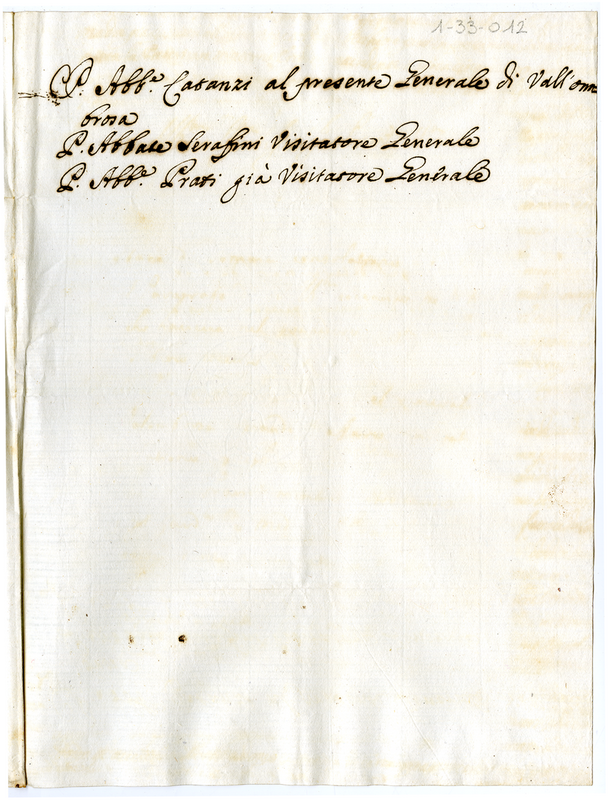 1-33-012
P. Abb.e Catanzi al presente Generale di Vall'om
brosa
P. Abbate Serafini Visitatore Generale
P. Abb.e Prati già Visitatore Generale